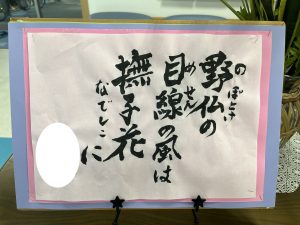 野仏の
のぼとけ
目線の風は
めせん
撫子花に
なでしこ